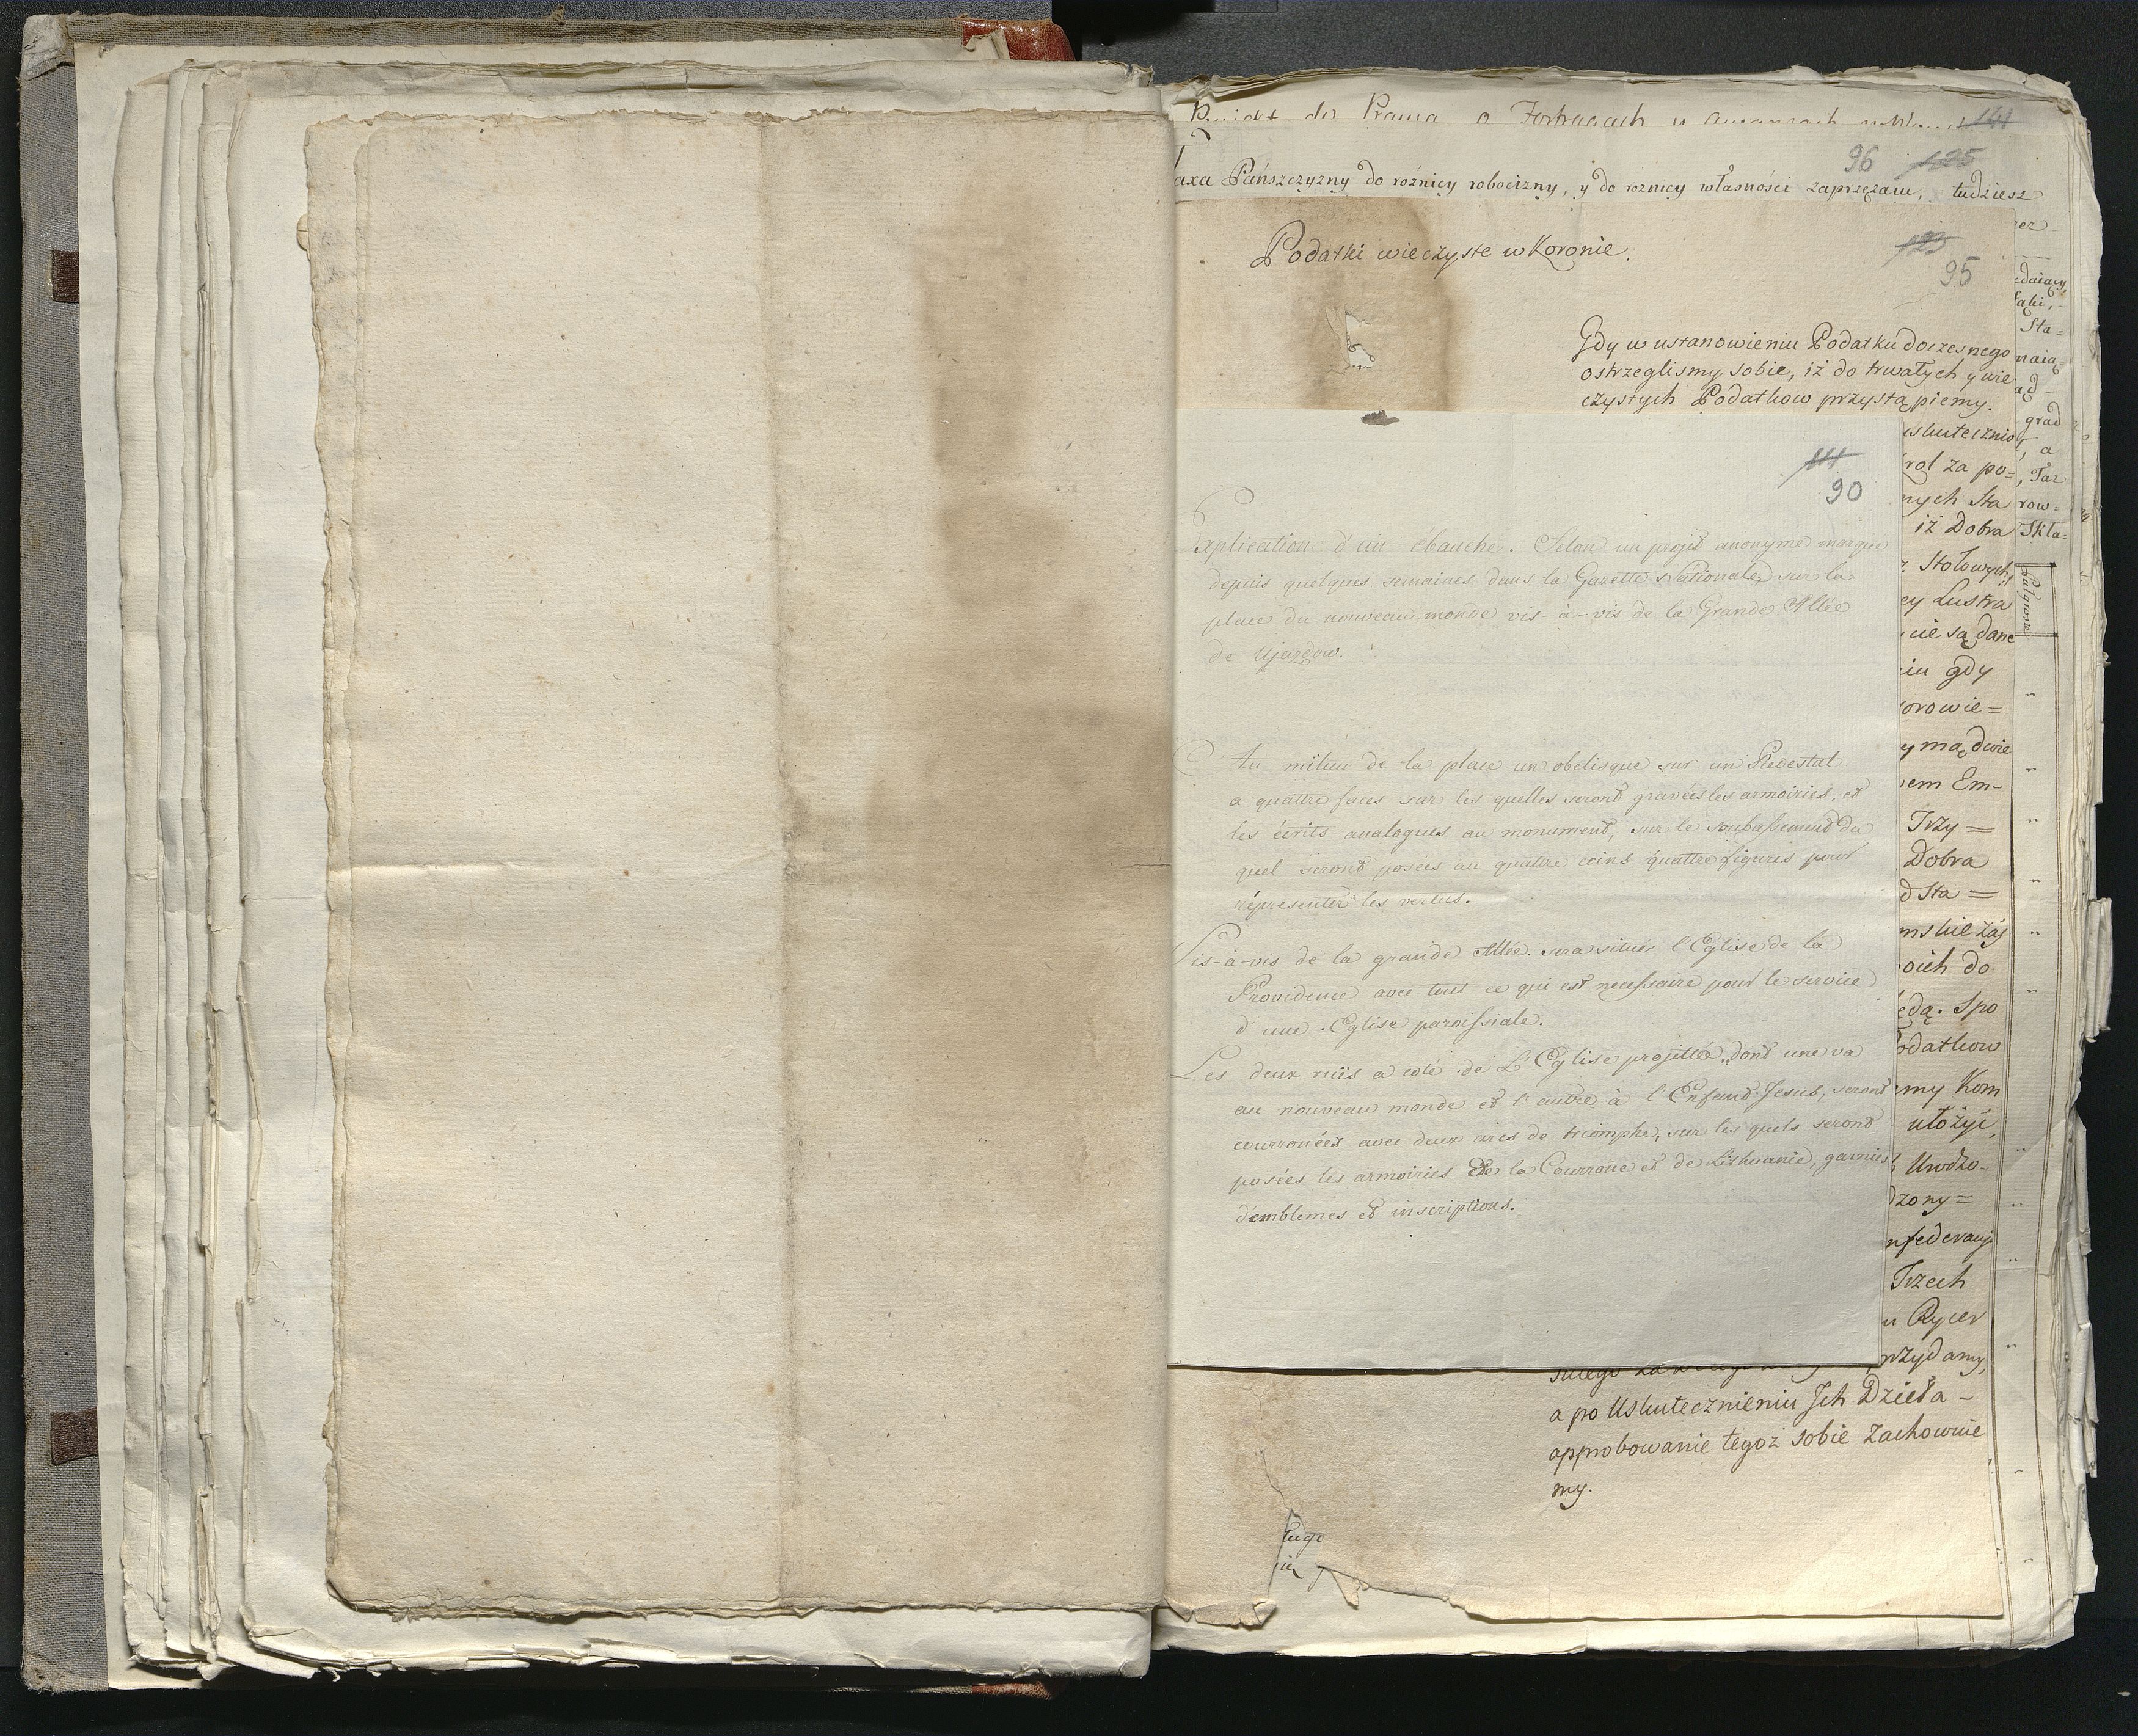 Projekt do Prawa o
141
96 125
axa Pańszczyzny do roźnicy robocizny, y do roznicy własności zaprzęzaiu, tudziesz
Podatki wieczyste w Koronie.
123
95
Gdy w ustanowieniu Podatku doczesnego
ostrzeglismy sobie, iż do trwałych y wie
czystych Podatkow przystąpiemy.
111
90
Explication d'un ébauche. Selon un projet anonyme marqué
depuis quelques semaines dans la Gazette Nationale, sur la
place du nouveau monde vis-à-vis de la Grande Allée
de Ujazdow.
Au milieu de la place un obelisque sur un Piedestal
a quattre faces sur les quelles seront gravées les armoiries, et
les écrits analogues au monument, sur le soubassement du
quel seront posées au quattre coins quattre figures pour
répresenter les vertus.
Vis-à-vis de la grande Allée sera situé l'Eglise de la
Providence avec tout ce qui est necessaire pour le service
d'une Eglise paroissiale.
Les deux ruës a coté de L'Eglise projettée, dont une va
au nouveau monde et l'autre à l'Enfant Jesus, seront
courronées avec deux arcs de triomphe, sur les quels seront
posées les armoiries de la Courrone et de Lithuanie, garnies
d'emblemes et inscriptions.
uskutecznio
rol za po=
nych Sta
iż Dobra
Stołowych
ey Lustra
nie są dane
iu gdy
orowie=
y mą dwie
em Em-
Trzy=
Dobra
d Sta=
mskie záś
oich do
ędą. Spo
odatkow
my Kom
ułożyć,
Urodzo-
dzony=
nfederacyi
Trzech
u Rycer
przydamy,
a po Uskutecznieniu Jch Dzieła-
approbowanie tegoż sobie zachowuie
my.
ługo
ią
zer
edaiący,
Sta=
naią
ad-
grad
, a
, Taz
row=
Skła=